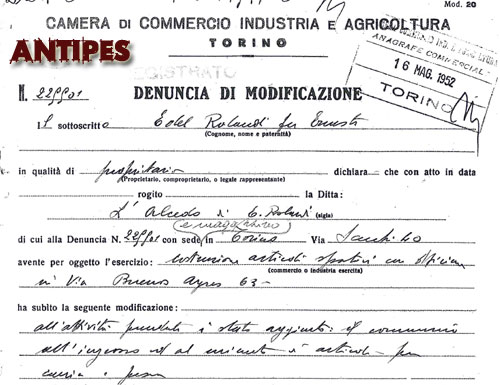 Mod. 20
CAMERA DI COMMERCIO INDUSTRIA E AGRICOLTURA
TORINO
ANTIPES
ANAGRAFE COMMERCIALE
16 MAG. 1952
TORINO
REGISTRATO
N. 229901 DENUNCIA DI MODIFICAZIONE
Il sottoscritto Edel Rolandi fu Ernesto
(Cognome, nome e paternità)
in qualità di proprietario dichiara che con atto in data
(Proprietario, comproprietario, o legale rappresentante)
rogito la Ditta:
L'Alcedo di E. Rolandi (sigla)
e magazzino
di cui alla Denuncia N. 229901 con sede in Torino Via 40
avente per oggetto l'esercizio: costruzione articoli sportivi con officina
(commercio o industria esercita)
in Via Buenos Ayres 63
ha subito la seguente modificazione:
all'attività predetta è stata aggiunta: il commercio
all'ingrosso ed al minuto di articoli per
caccia e pesca